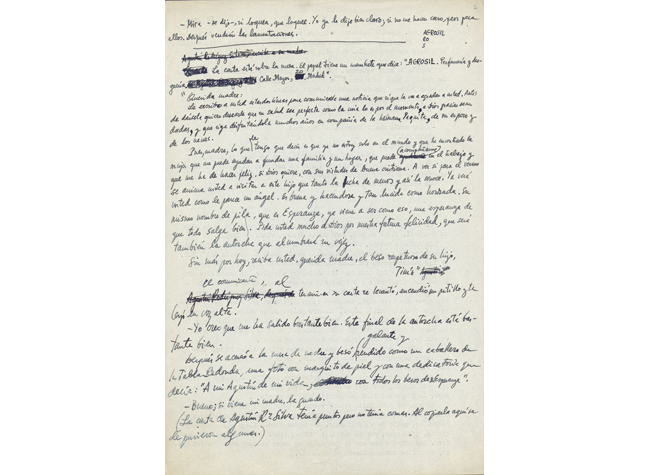 - Mira - se dijo -, si loquea, que loquee. Yo ya lo dije bien claro; si no me hacen caso, peor para
ellos. Después vendrán las lamentaciones.
AGROSIL
La carta está sobre la mesa. El papel tiene un membrete que dice: "AGROSIL. Perfumería y dro-
guería, Calle Mayor, 20, Madrid".
"Querida madre:
Le escribo a usted estas líneas para comunicarle una noticia que sé que le va a agradar a usted. Antes
he de decirle quiero desearle que su salud sea perfecta como la mía lo es por el momento, a Dios gracias sean
dadas, y que siga disfrutándola muchos años en compañía de la hermana Paquita, de su esposo y
de los nenes.
Pues, madre, lo que tengo que decirle es que ya no estoy solo en el mundo y que he encontrado la
mujer que me puede ayudar a fundar una familia y un hogar, que puede acompañarme en el trabajo y
que me ha de hacer feliz, si Dios quiere, con sus virtudes de buena cristiana. A ver si para el verano
se anima usted a visitar a este hijo que tanto la echa de menos y así la conoce. Ya verá
usted como le parece un ángel. Es buena y hacendosa y tan lucida como honrada. Su
mismo nombre de pila, que es Esperanza, ya viene a ser como eso, una esperanza de
que todo salga bien. Pida usted mucho a Dios por nuestra futura felicidad, que será
también la antorcha que alumbrará su vejez.
Sin más por hoy, reciba usted, querida madre, el beso respetuoso de su hijo,
Tinín"
El comunicante, al terminar su carta se levantó, encendió un pitillo y la
leyó en voz alta.
- Yo creo que me ha salido bastante bien. Este final de la antorcha está bas-
tante bien.
Después se acercó a la mesa de noche y besó, galante y rendido como un caballero de
la Tabla Redonda, una foto con marquito de piel y con una dedicatoria que
decía: "A mi Agustín de mi vida, con todos los besos de su Esperanza".
- Bueno; si viene mi madre, la guardo.
(La carta de Agustín Rz. Silva tenía puntos pero no tenía comas. Al copiarlo aquí se
le pusieron algunas.)